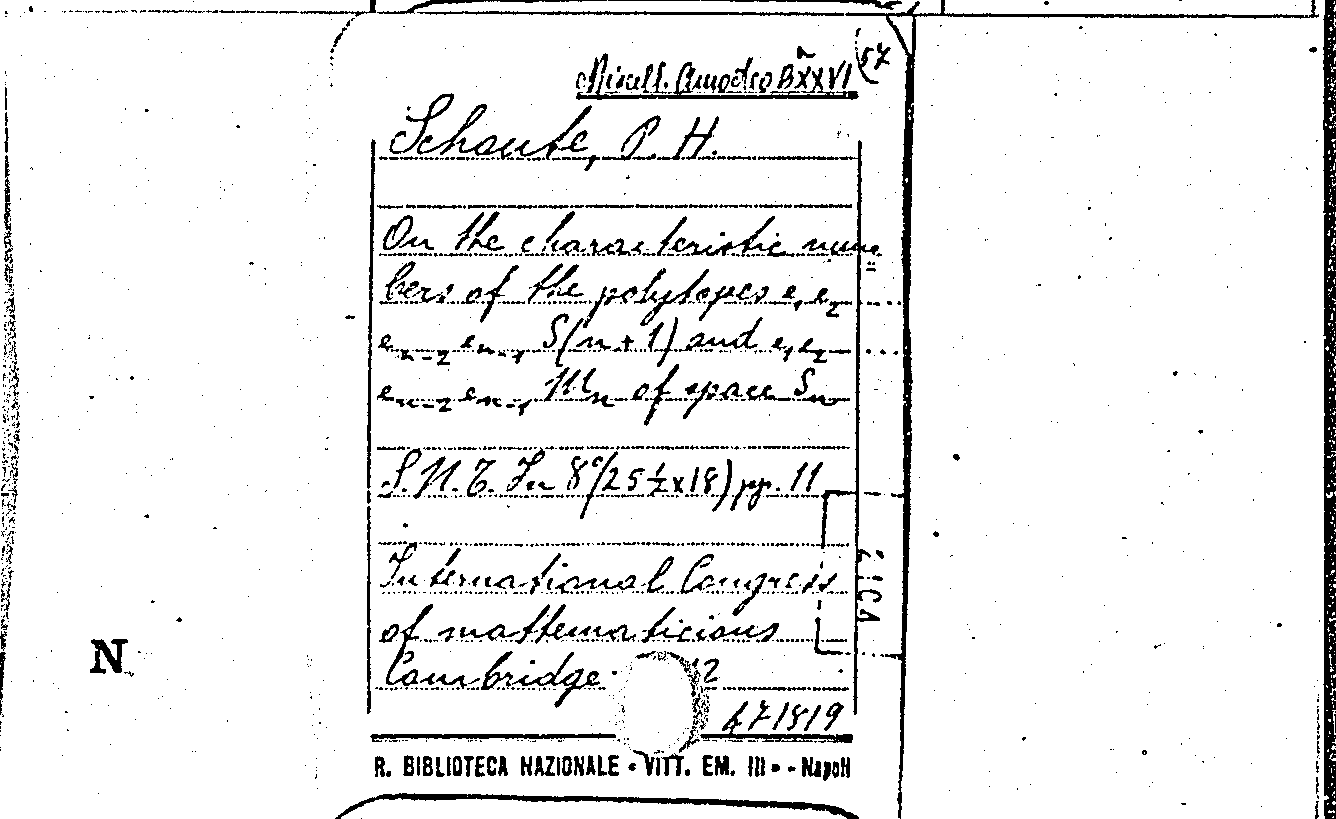 Miscell. Amodeo B XXVI (57
Schoute, P. H.
On the characteristic num=
bers of the polytopes e₁e₂ ...
eₙ₋₂ eₙ₋₁ S(n+1) and e₁e₂ ...
eₙ₋₂ eₙ₋₁ Mₙ of space Sₙ
S.N.T. In 8°(25½x18) pp. 11
International Congress
of mathematicians
Cambridge 2
471819
R. BIBLIOTECA NAZIONALE • VITT. EM. III • - Napoli
N